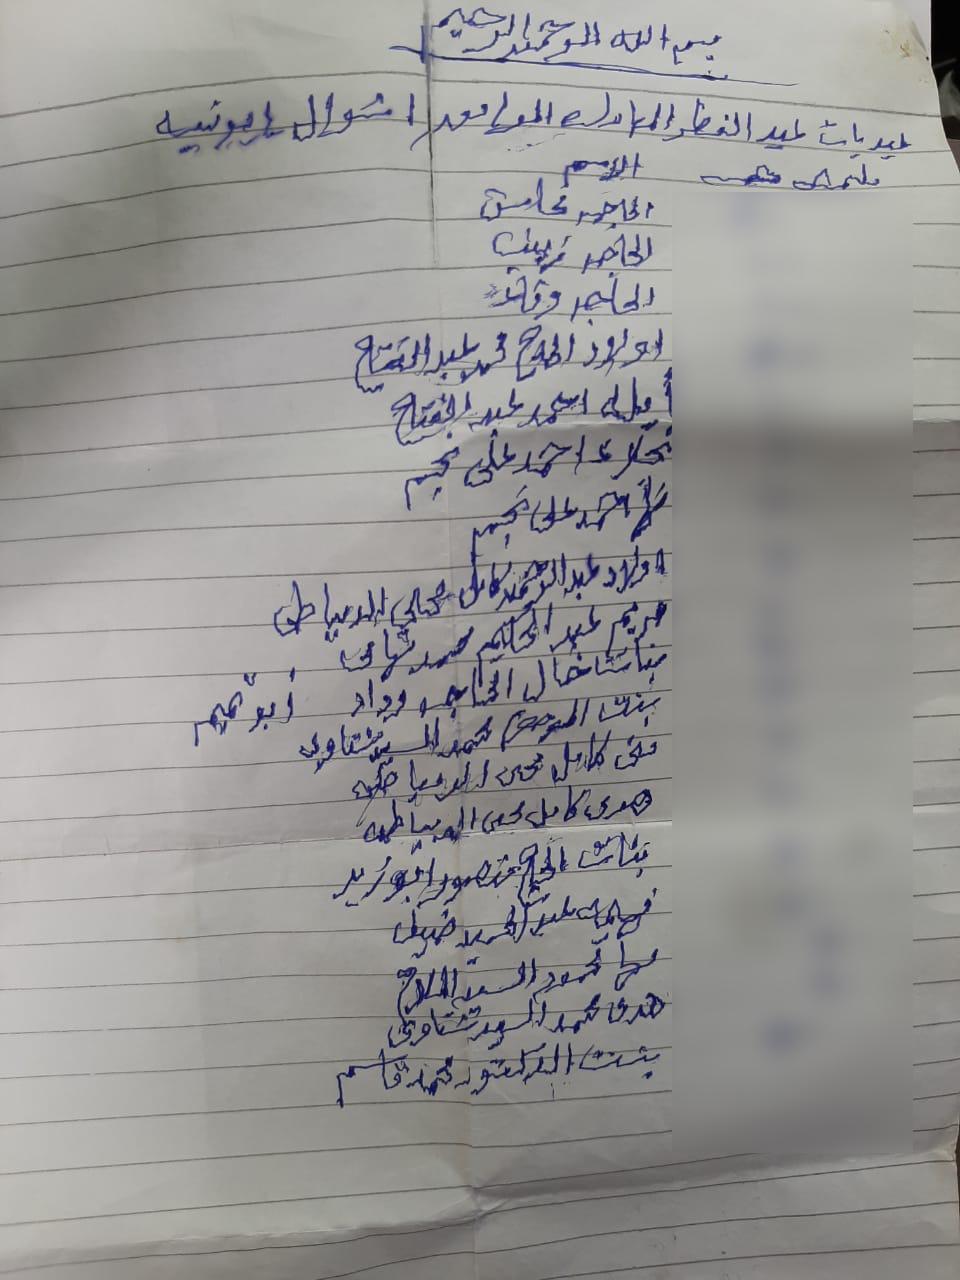 بسم الله الرحمن الرحيم
عيديات عيد الفطر المبارك الموافق ١ شوال ١ يونيه
مليم جنيه الاسم
الحاجه محاسن
الحاجه زينب
الحاجه
اولاد الحاج محمد عبد الفتاح
احمد عبد الفتاح
نجلاء احمد على نجيم
احمد على نجيم
اولاد عبد الرحمن كامل محى الدمياطى
مريم عبد الحليم محمد تهامى
بنات خال الحاجه وداد ابو
بنت المرحوم محمد السيد شناوى
منى كامل محى الدمياطى
هدى كامل محى الدمياطى
بنات الحاج منصور ابو زيد
عبد الحميد
مها محمود السيد الملاح
هدى محمد السيد شناوى
بنت الدكتور محمد قاسم